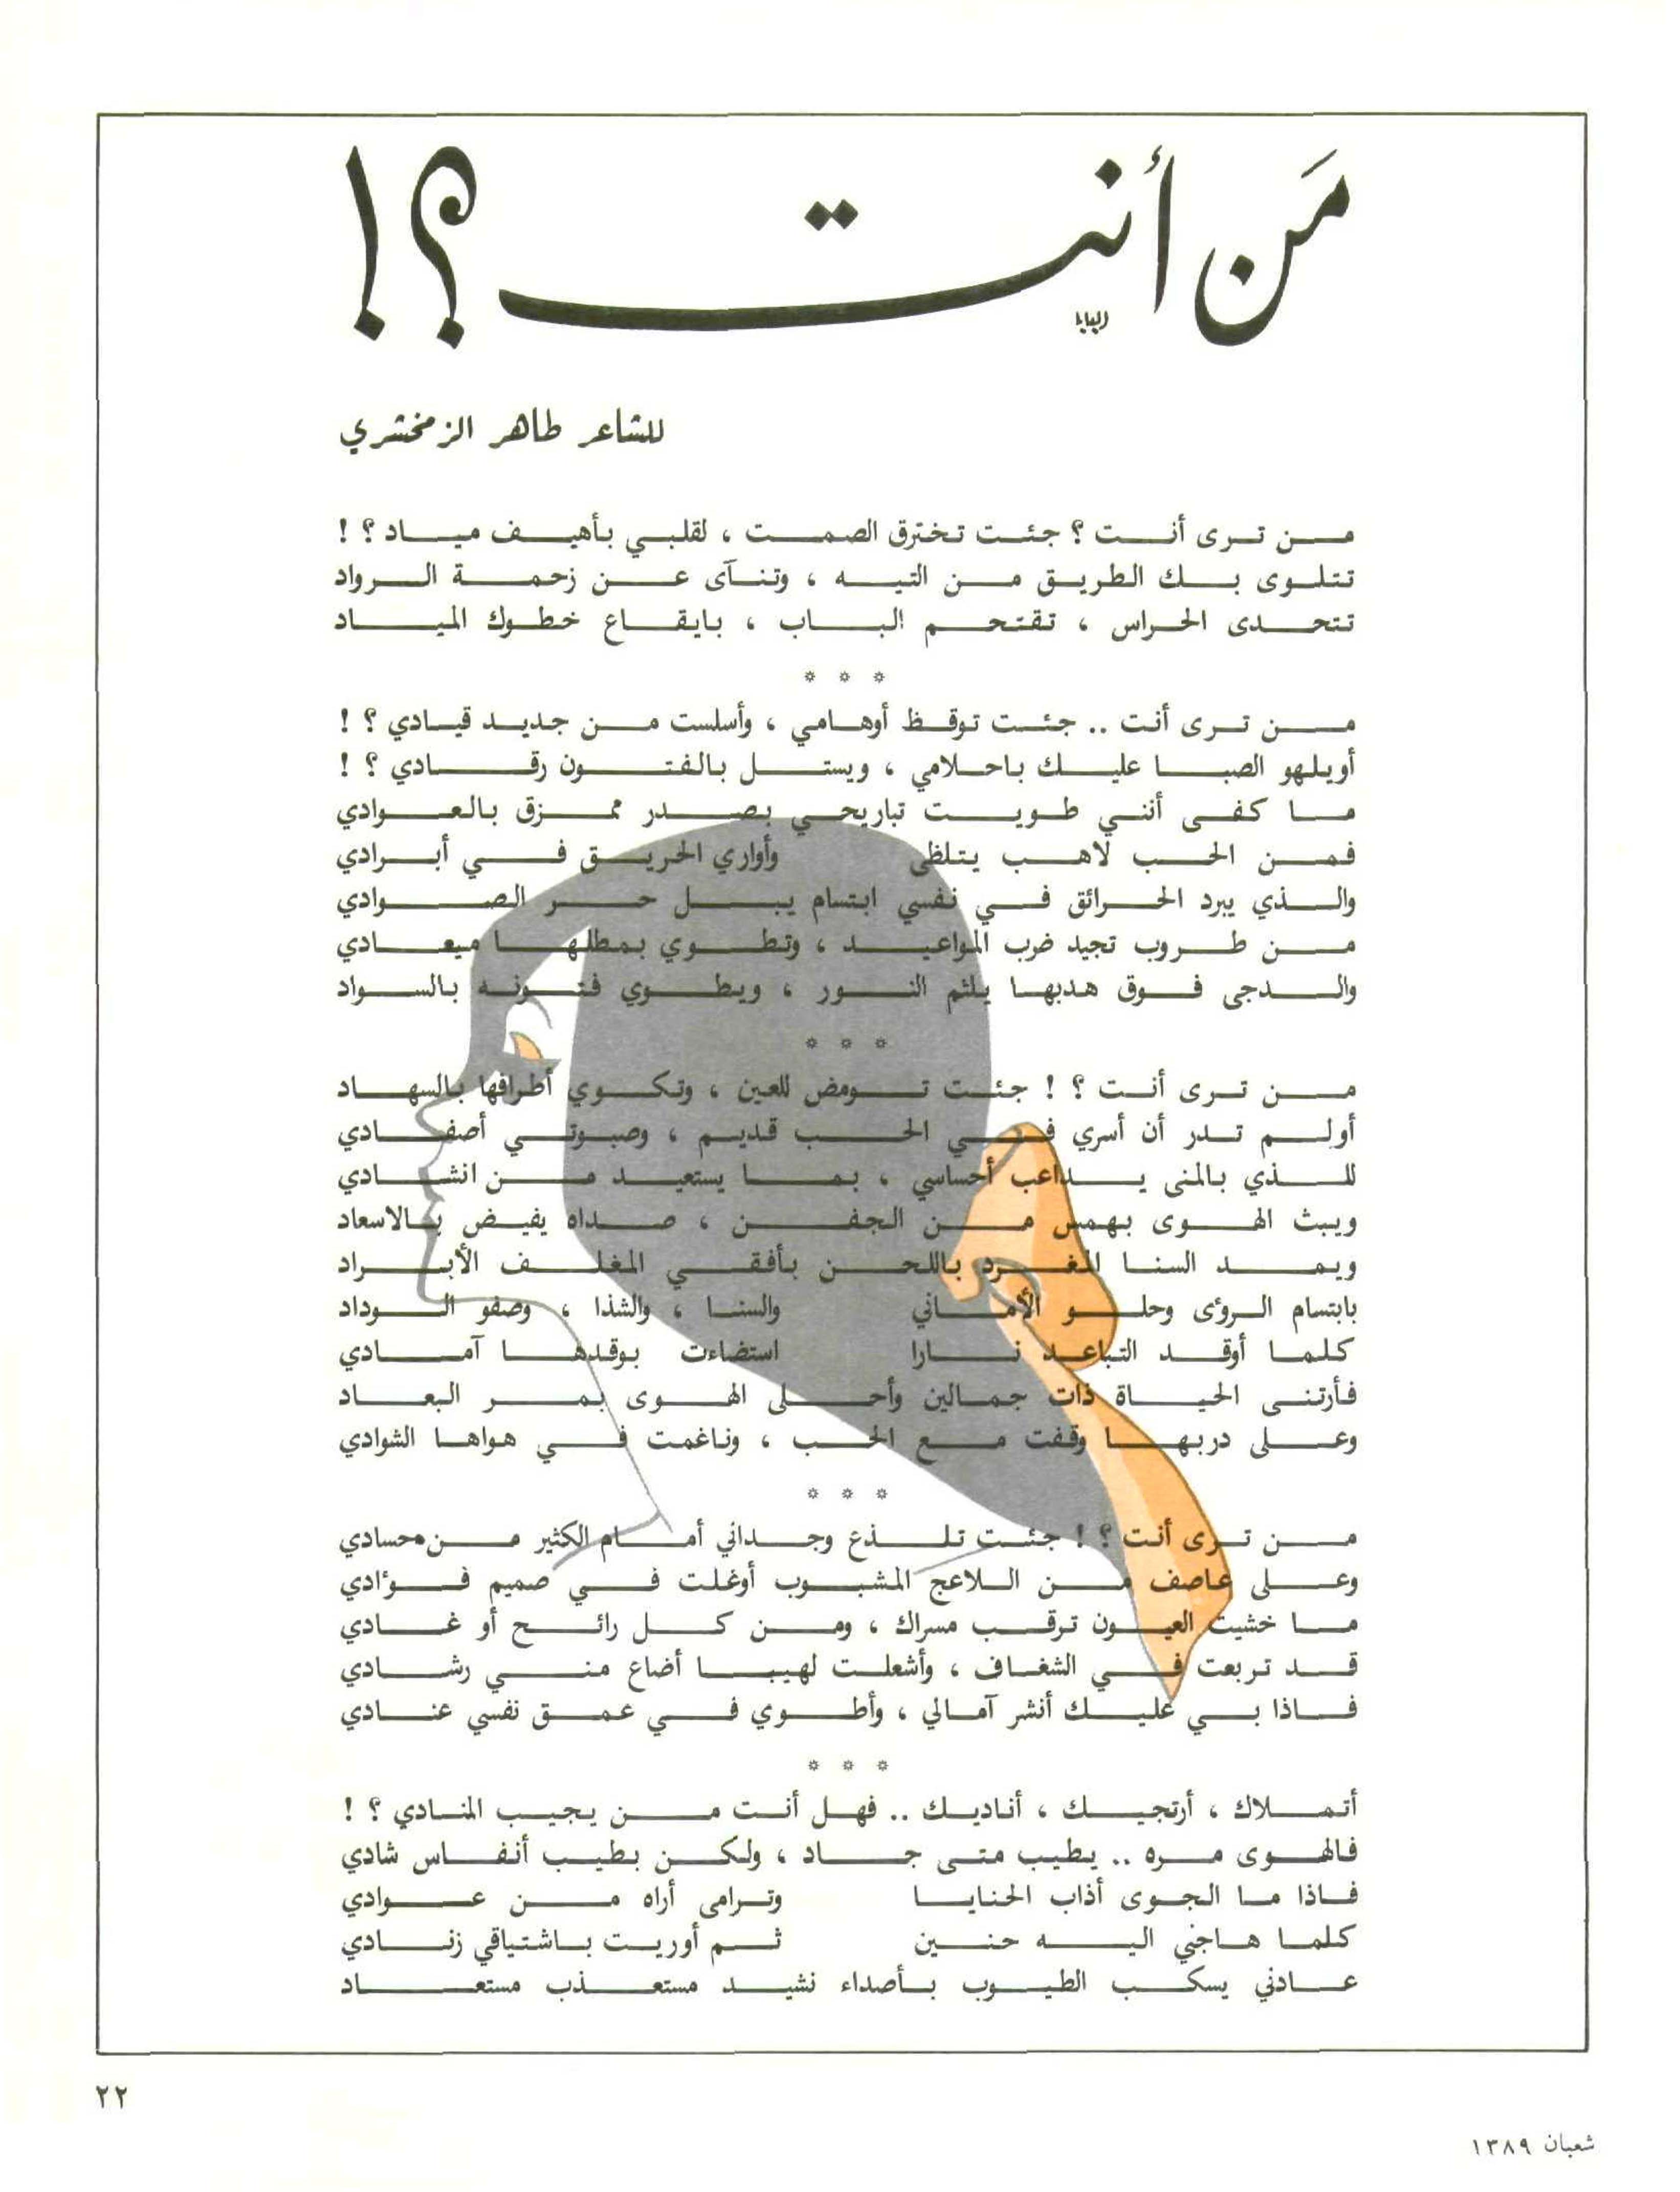 مَن أنت ؟!
للشاعر طاهر الزمخشري
من ترى أنت ؟ جئت تخترق الصمت ، لقلبي بأهيف مياد ؟ !
تتلوى بك الطريق من التيه ، وتنآى عن زحمة الرواد
تتحدى الحراس ، تقتحم الباب ، بايقاع خطوك المياد
* * *
من ترى أنت .. جئت توقظ أوهامي ، وأسلست من جديد قيادي ؟ !
أويلهو الصبا عليك باحلامي ، ويستل بالفتون رقادي ؟ !
ما كفى أنني طويت تباريحي بصدر ممزق بالعوادي
فمن الحب لاهب يتلظى وأواري الحريق في أبرادي
والذي يبرد الحرائق في نفسي ابتسام يبل حر الصوادي
من طروب تجيد ضرب المواعيد ، وتطوي بمطلها ميعادي
والدجى فوق هدبها يلثم النور ، ويطوي فتونه بالسواد
* * *
من ترى أنت ؟ ! جئت تومض للعين ، وتكوي أطرافها بالسهاد
أولم تدر أن أسري في الحب قديم ، وصبوتي أصفادي
للذي بالمنى يداعب أحساسي ، بما يستعيد من انشادي
ويبث الهوى بهمس من الجفن ، صداه يفيض بالاسعاد
ويمد السنا المغرد باللحن بأفقي المغلف الأبراد
بابتسام الرؤى وحلو الأماني والسنا ، والشذا ، وصفو الوداد
كلما أوقد التباعد نارا استضاءت بوقدها آمادي
فأرتنى الحياة ذات جمالين وأحلى الهوى بمر البعاد
وعلى دربها وقفت مع الحب ، وناغمت في هواها الشوادي
* * *
من ترى أنت ؟ ! جئت تلذع وجداني أمام الكثير من حسادي
وعلى عاصف من اللاعج المشبوب أوغلت في صميم فؤادي
ما خشيت العيون ترقب مسراك ، ومن كل رائح أو غادي
قد تربعت في الشغاف ، وأشعلت لهيبا أضاع مني رشادي
فاذا بي عليك أنشر آمالي ، وأطوي في عمق نفسي عنادي
* * *
أتملاك ، أرتجيك ، أناديك .. فهل أنت من يجيب المنادي ؟ !
فالهوى مره .. يطيب متى جاد ، ولكن بطيب أنفاس شادي
فاذا ما الجوى أذاب الحنايا وترامى أراه من عوادي
كلما هاجني اليه حنين ثم أوريت باشتياقي زنادي
عادني يسكب الطيوب بأصداء نشيد مستعذب مستعاد
٢٢
شعبان ١٣٨٩